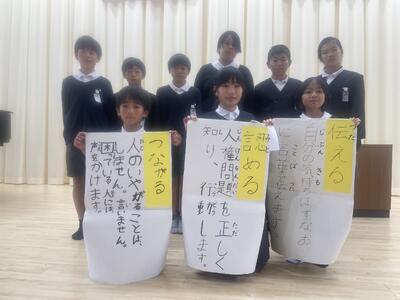 伝える
自分の気持ちはすなお
に言葉で伝えます。
認める
人権問題を正しく
知り、行動します。
つながる
人のいやがることは、
しません。言いません。
困っている人には、
声をかけます。